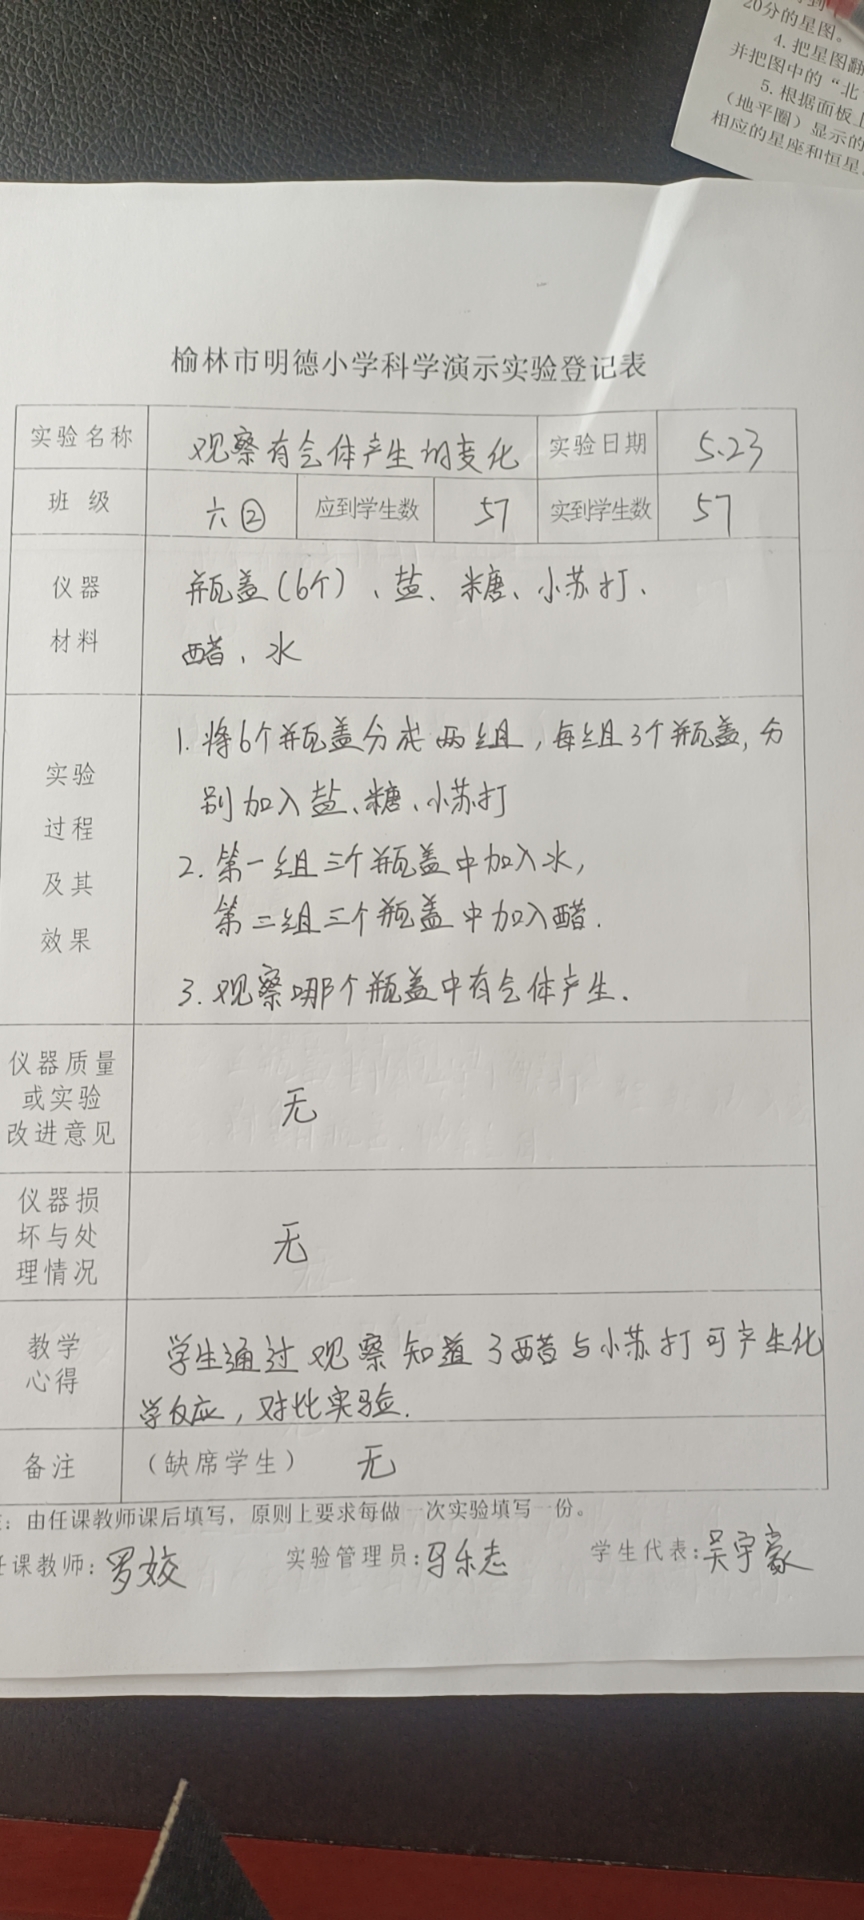 20分的星图。
4. 把星图翻
并把图中的“北
5. 根据面板上
（地平圈）显示的
相应的星座和恒星
榆林市明德小学科学演示实验登记表
实验名称 观察有气体产生的变化 实验日期 5.23
班 级 六② 应到学生数 57 实到学生数 57
仪器 瓶盖（6个）、盐、糖、小苏打、
材料 醋、水
1. 将6个瓶盖分成两组，每组3个瓶盖，分
实验
别加入盐、糖、小苏打
过程
2. 第一组三个瓶盖中加入水，
及其
第二组三个瓶盖中加入醋.
效果
3. 观察哪个瓶盖中有气体产生.
仪器质量
或实验 无
改进意见
仪器损
坏与处 无
理情况
教学 学生通过观察知道了醋与小苏打可产生化
心得 学反应，对比实验.
备注 （缺席学生） 无
：由任课教师课后填写，原则上要求每做一次实验填写一份。
任课教师: 罗姣 实验管理员: 马乐志 学生代表: 吴宇豪